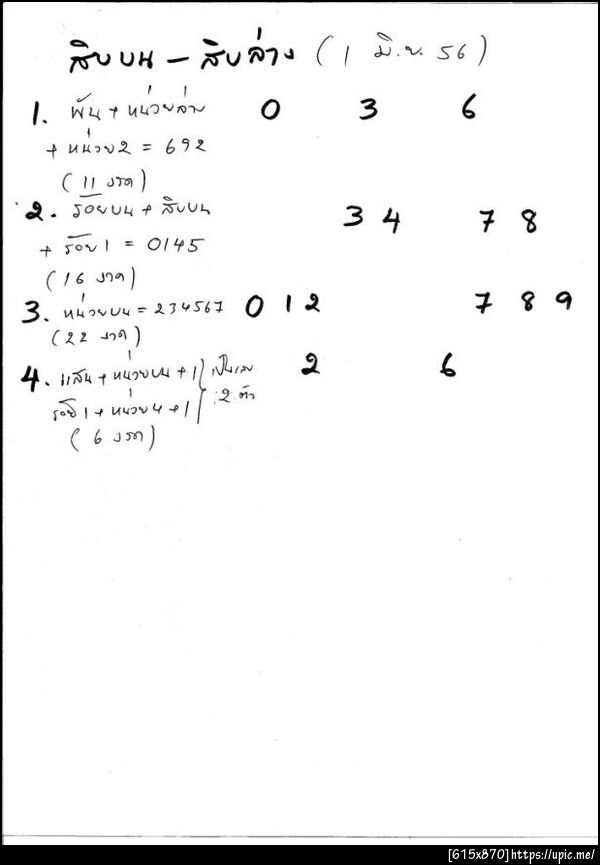 สิบบน - สิบล่าง (1 มิ.ย. 56)
1. พัน + หน่วยล่าง 0 3 6
+ หน่วย2 = 692
(11 งวด)
2. ร้อยบน + สิบบน 3 4 7 8
+ ร้อย1 = 0145
(16 งวด)
3. หน่วยบน = 234567 0 1 2 7 8 9
(22 งวด)
4. แสน + หน่วยบน + 1 เป็นเลข 2 6
ร้อย1 + หน่วย4 + 1 2 ตัว
(6 งวด)
[615x870]https://upic.me/